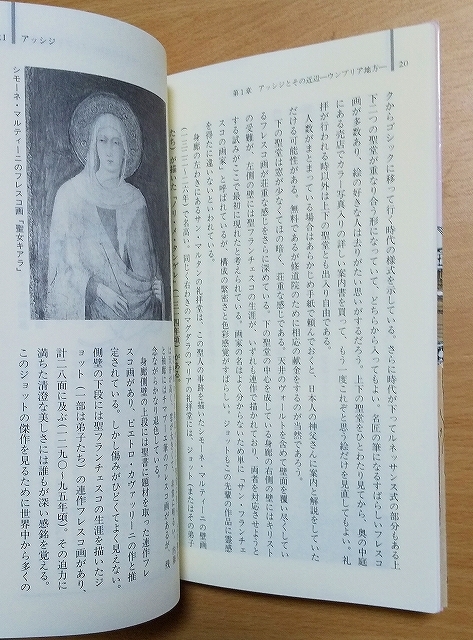 20
第1章 アッシジとその近辺—ウンブリア地方—
クからゴシックに移って行く時代の様式を示している。さらに時代が下ってルネッサンス式の部分もある上
下二つの聖堂が重なり合う形になっていて、どちらから入ってもよい。名匠の筆になるすばらしいフレスコ
画が多数あり、絵の好きな人は去りがたい思いがするだろう。上下の聖堂をひとわたり見てから、奥の中庭
にある売店でカラー写真入りの詳しい案内書を買って、もう一度これぞと思う絵だけを見直してもよい。礼
拝が行われる時以外は上下の聖堂とも出入り自由である。
人数がまとまっている場合はあらかじめ手紙で頼んでおくと、日本人の神父さんに案内と解説をしていた
だける可能性がある。無料であるが修道院のために相応の献金をするのが当然であろう。
下の聖堂は窓が少なくてほの暗く、荘重な感じである。天井のヴォールトを含めて壁面を覆い尽くしてい
るフレスコ画が荘重な感じをさらに深めている。下の聖堂の中心を成している身廊の右側の壁にはキリスト
の受難が、左側の壁には聖フランチェスコの生涯が、いずれも連作で描かれており、両者を対応させようと
する試みがここで最初に現れたと考えられている。画家の名はよく分からないため単に「サン・フランチェ
スコの画家」と呼ばれているが、構成の緊密さと色彩感覚がすばらしい。ジョットもこの先輩の作品に霊感
を得たに違いないといわれる。
身廊の左わきにあるサン・マルティーノの礼拝堂は、この聖人の事跡を描いたシモーネ・マルティーニの壁画
（一三二二—二六年）で名高い。同じく右わきのマグダラのマリアの礼拝堂には、ジョット（またはその弟子
たち）が描いた
アッシジ
シモーネ・マルティーニのフレスコ画「聖女キアラ」
身廊側壁の上段には聖書に題材を取った連作フレ
スコ画があり、ピエトロ・カヴァッリーニの作と推
定されている。しかし傷みがひどくてよく見えない。
側壁の下段には聖フランチェスコの生涯を描いたジ
ョット（一部は弟子たち）の連作フレスコ画があり、
計二八面に及ぶ（一二九〇—九五年頃）。その迫力に
満ちた清澄な美しさには誰もが深い感銘を覚える。
このジョットの傑作を見るために世界中から多くの